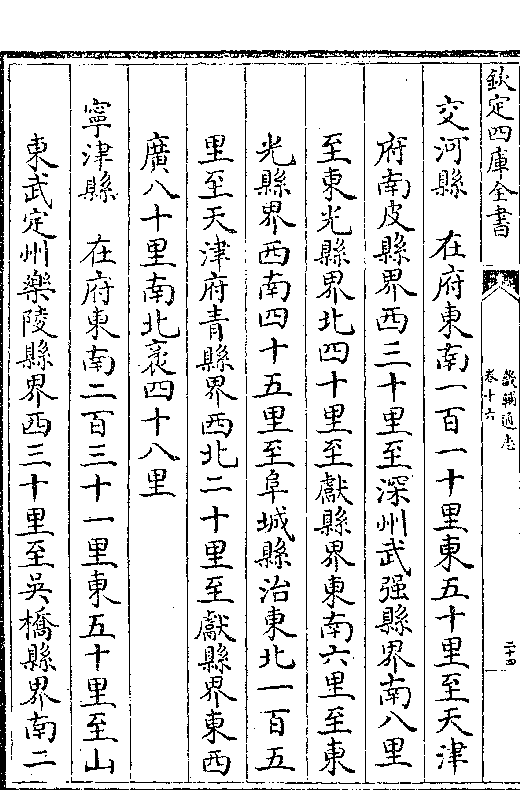 欽定四庫全書
畿輔通志
卷十六
二十四
交河縣　在府東南一百一十里東五十里至天津
府南皮縣界西三十里至深州武强縣界南八里
至東光縣界北四十里至獻縣界東南六里至東
光縣界西南四十五里至阜城縣治東北一百五
里至天津府青縣界西北二十里至獻縣界東西
廣八十里南北袤四十八里
寧津縣　在府東南二百三十一里東五十里至山
東武定州樂陵縣界西三十里至吳橋縣界南二